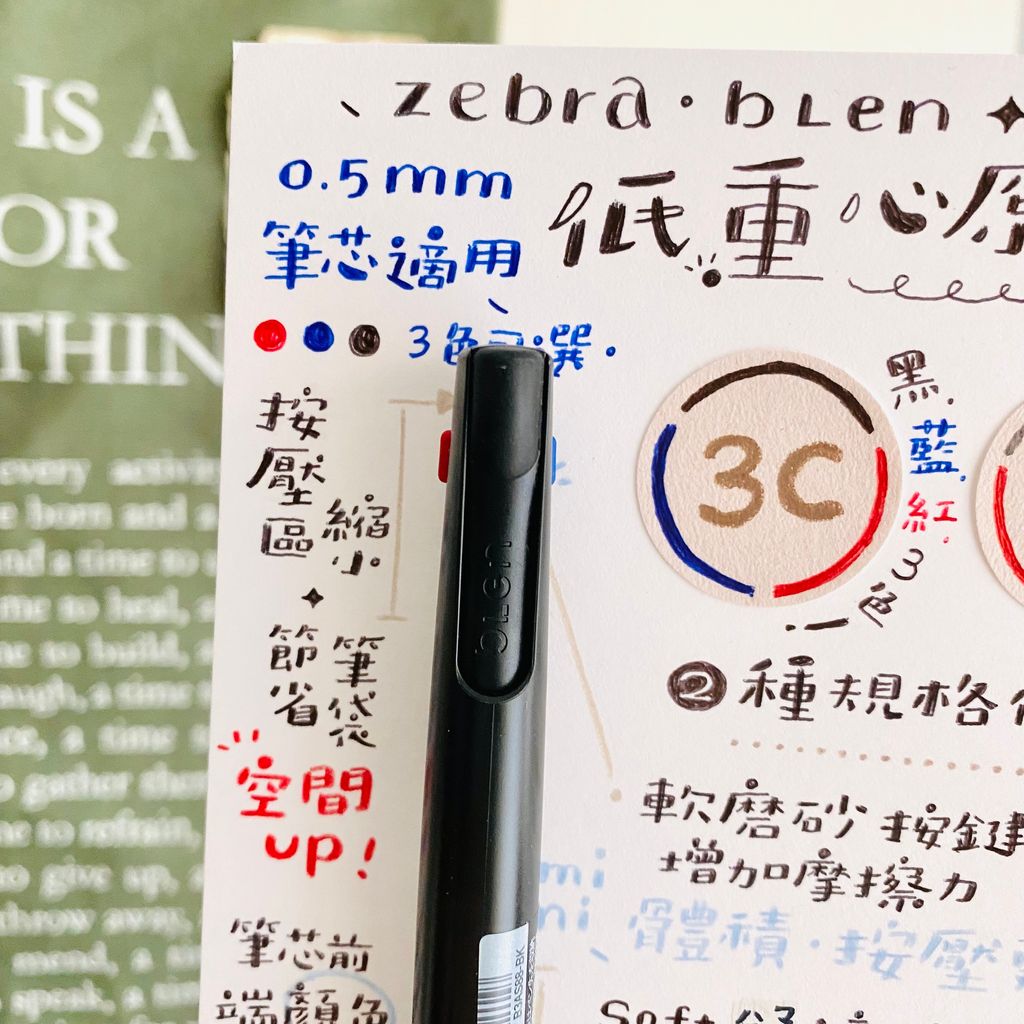 IS A
OR
THIN
every activi
e born and a
nd a time to
me to heal, a
ne to build,
augh, a time
ce, a time
o gather them
me to refrain,
o give up, a
throw away,
mend, a
speak, a time
zebra・bLen
低重心
0.5mm
筆芯適用
3色可選.
按壓區
縮小
節省
筆袋
空間
UP!
筆芯前
端顏色
blen
B3AS88-BK
3C
黑.
藍.
紅.
3色
2種規格
軟磨砂按鍵
增加摩擦力
mi
ni
骨豊積・按壓
Soft